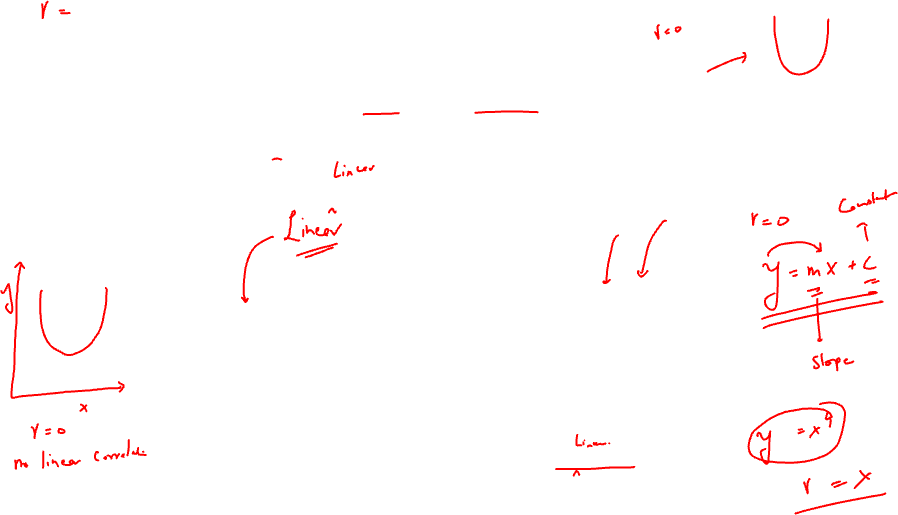 r =
r=0
Linear
Linear
r=0
Constant
y = mx + c
Slope
y
x
r=0
no linear correlatn
Linear
y = x⁹
r = x